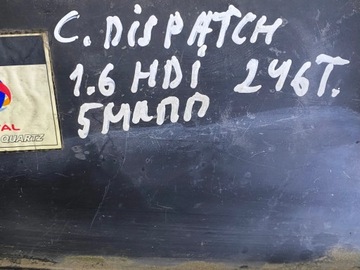 C. DISPATCH
1.6 HDI 246T.
5МКПП
AL
QUARTZ